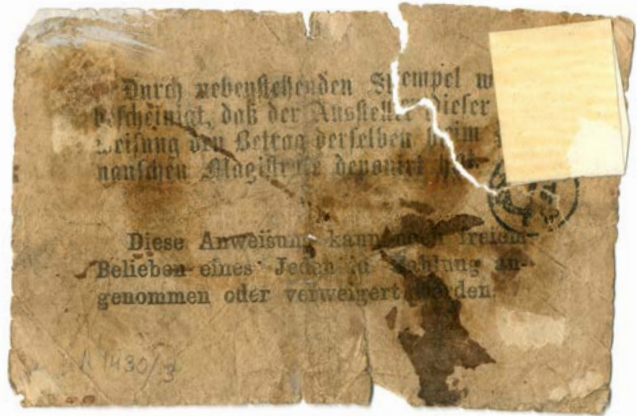 Durch nebenstehenden Stempel
bescheinigt, daß der Aussteller dieser
weisung den Betrag derselben beim
nauschen Magistrate deponirt hat.
Diese Anweisung kann nach freiem
Belieben eines Jeden in Zahlung an-
genommen oder verweigert werden.
1430/3